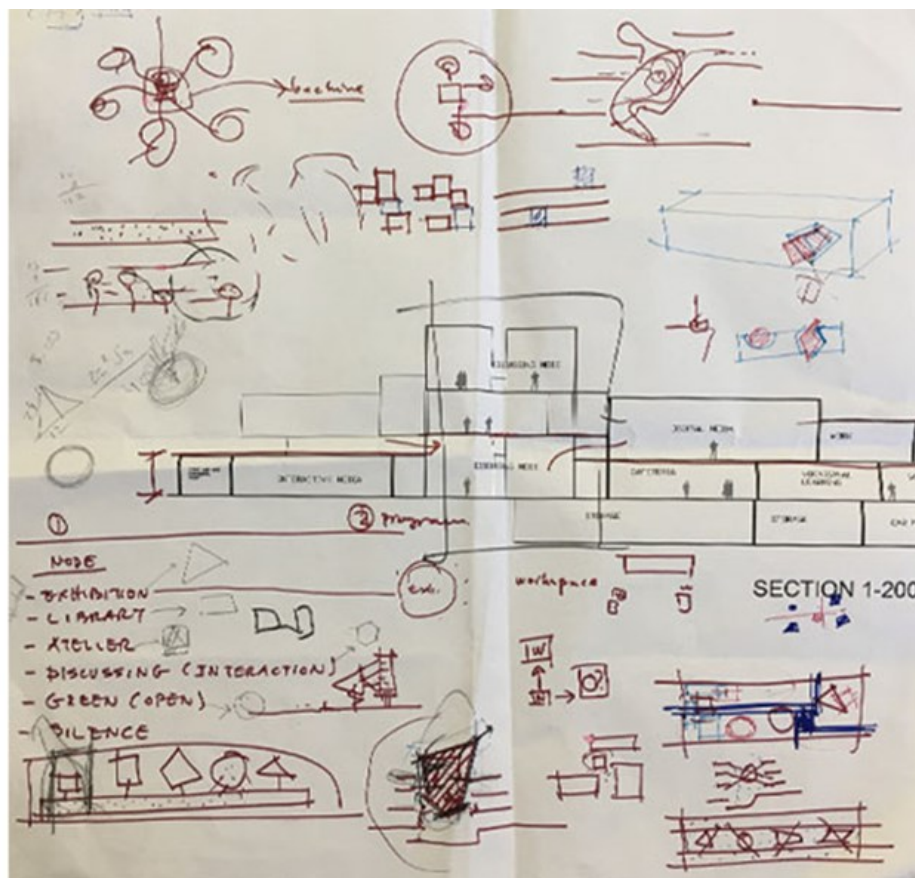 machine
EXHIBITING NODE
DIGITAL MEDIA
WORK
INTERACTIVE MEDIA
EXHIBITING NODE
CAFETERIA
VOCATIONAL
LEARNING
STORAGE
STORAGE
CAR P
① ② program
NODE
- EXHIBITION
- LIBRARY
- ATELLER
- DISCUSSING (INTERACTION)
- GREEN (OPEN)
- SILENCE
exh.
workspace
SECTION 1-200
W